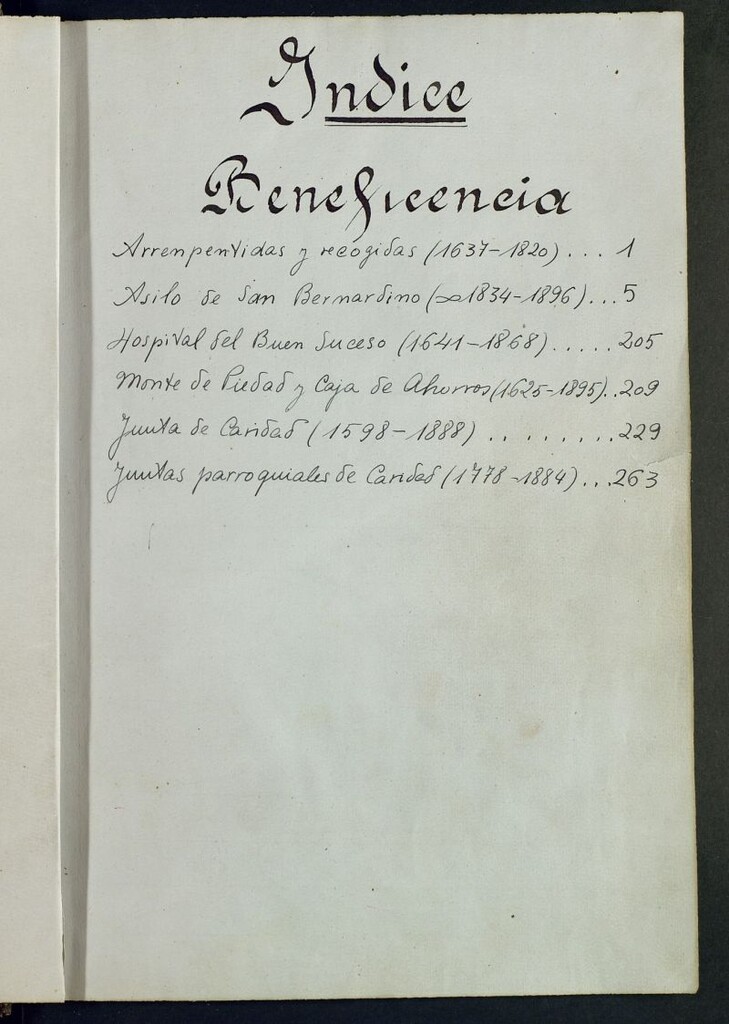 Indice
Beneficencia
Arrenpentidas y recogidas (1637-1820)... 1
Asilo de San Bernardino (∞1834-1896)...5
Hospital del Buen Suceso (1641-1868).....205
Monte de Piedad y Caja de Ahorros (1625-1895)..209
Junta de Caridad (1598-1888) ........229
Juntas parroquiales de Caridad (1778-1884)...263